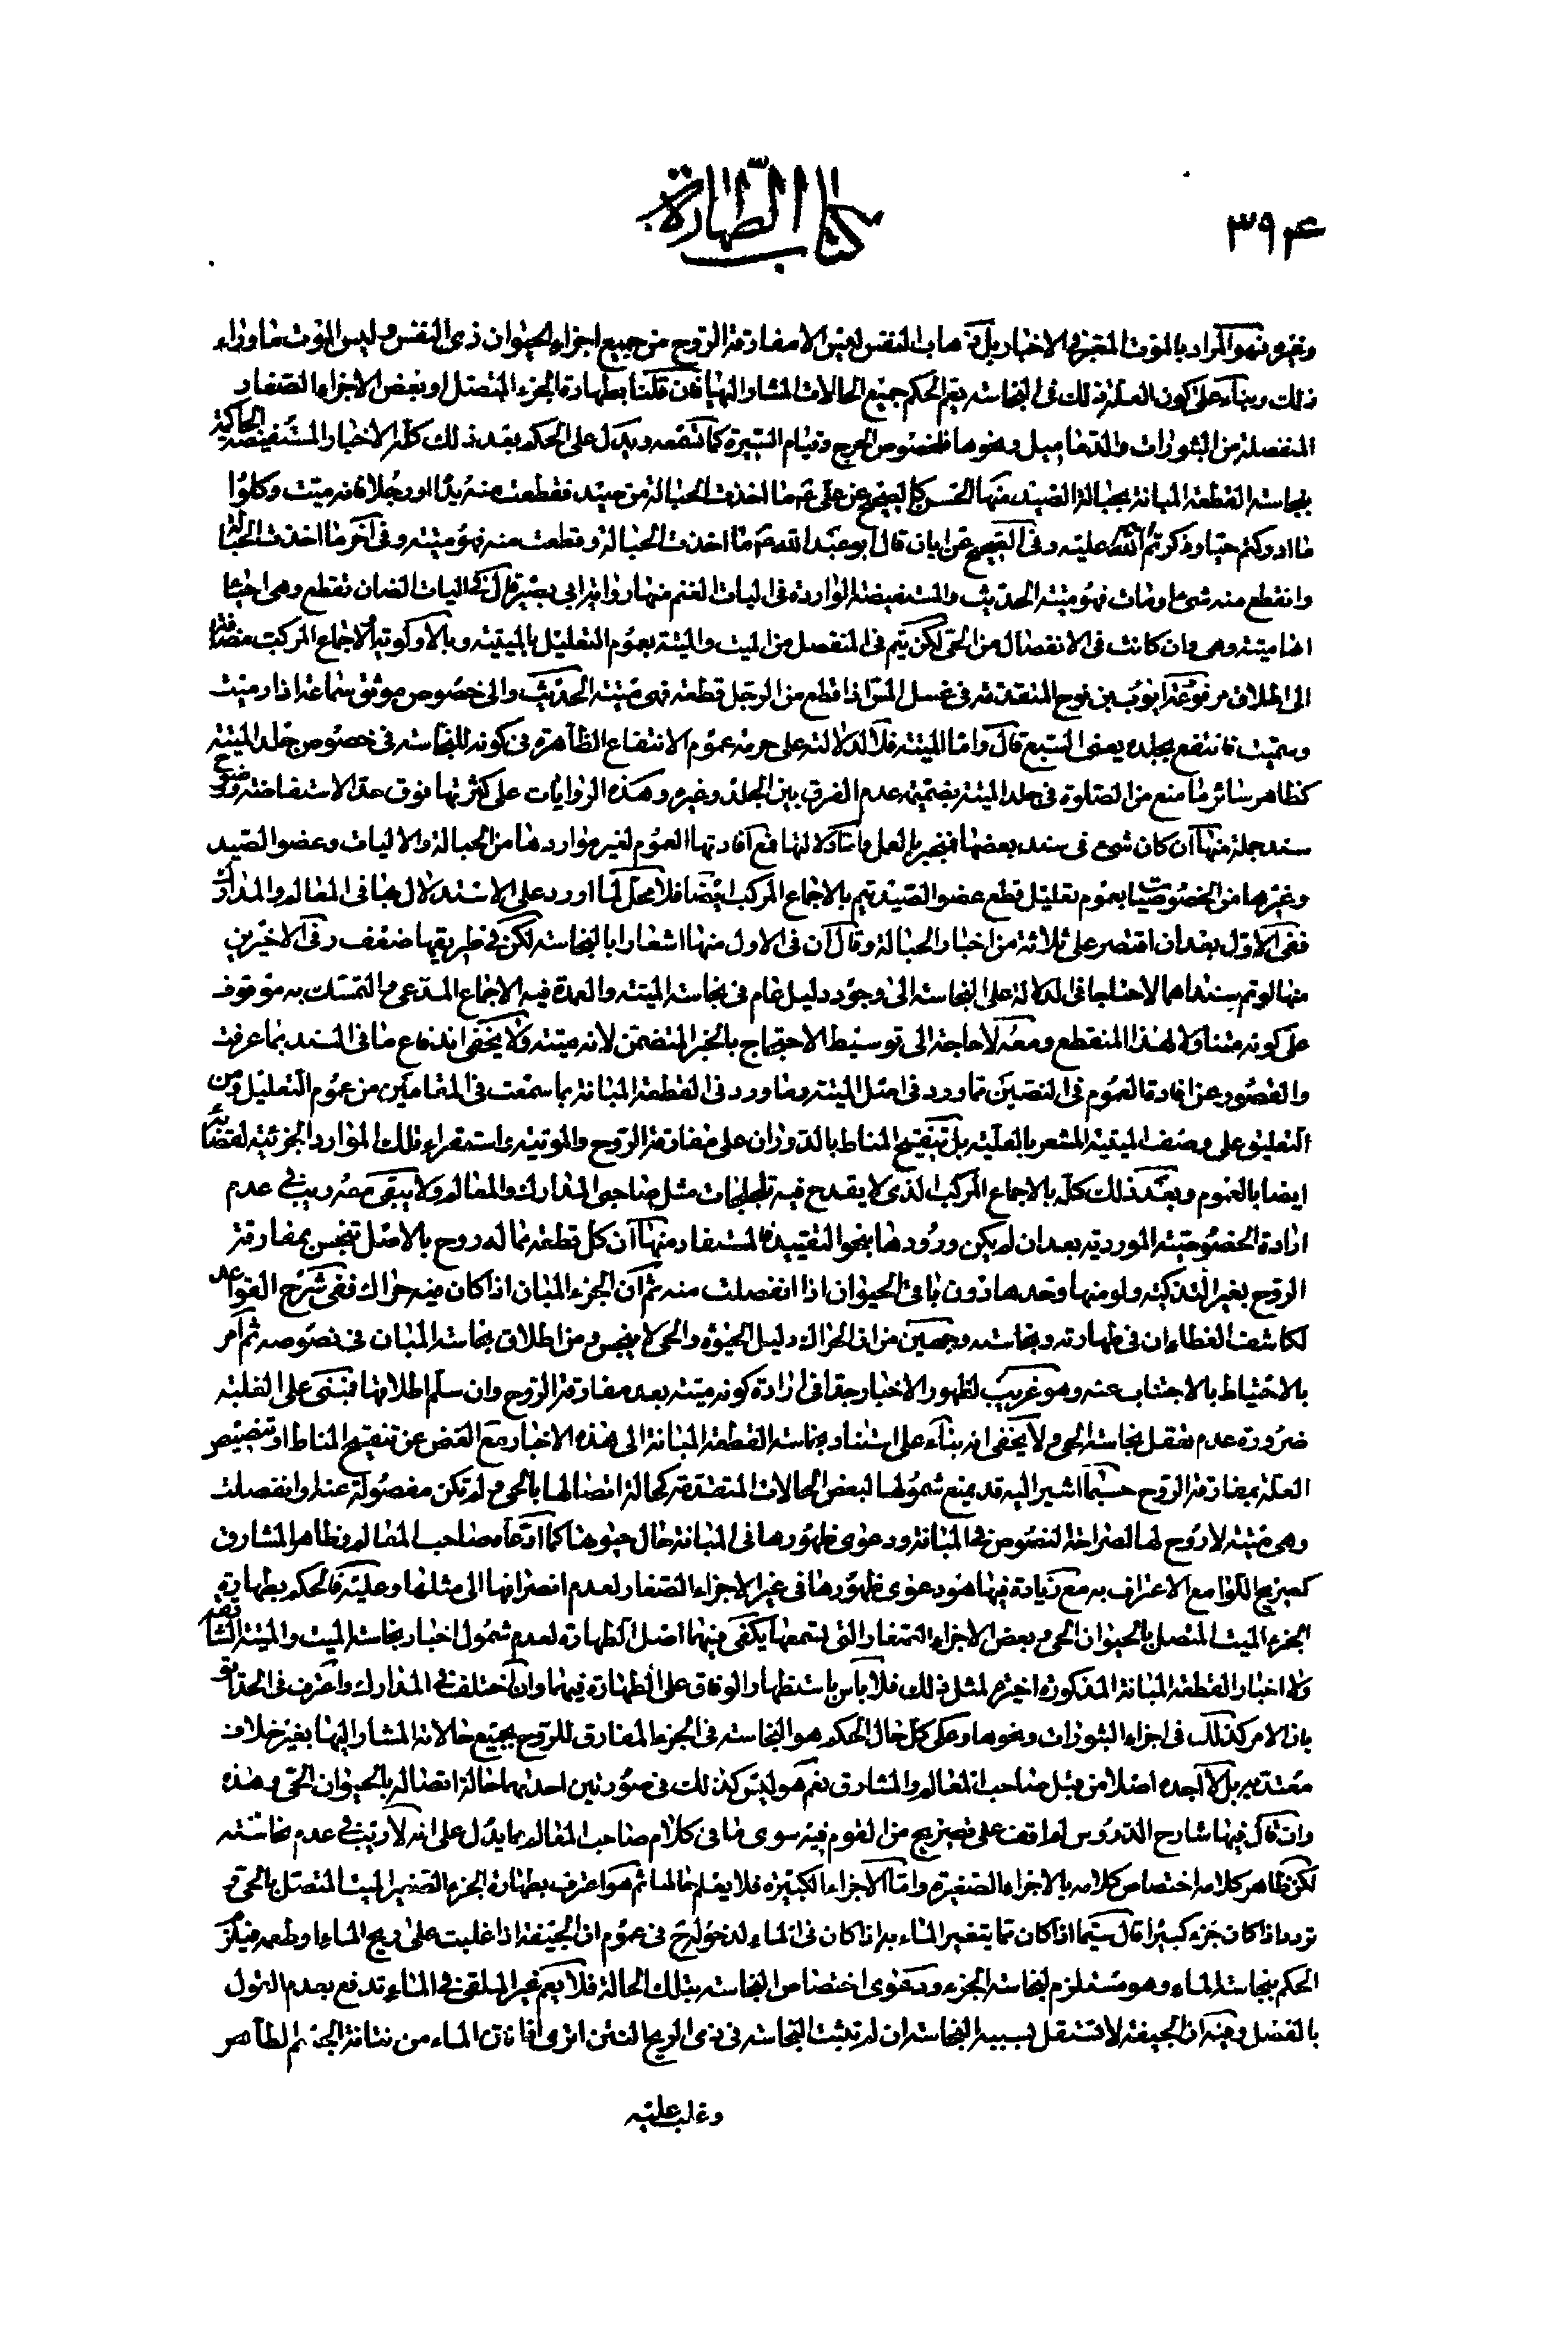 ۳۹۴
كتاب الطهارة
وغيره فهو المراد بالموت المعتبر في الاخبار بل ذهاب النفس ليس الا مفارقة الروح من جميع اجزاء الحيوان ذى النفس وليس الموت ما وراء
ذلك وبناء على كون العلة ذلك في النجاسة يعم الحكم جميع الحالات المشار اليها فان قلنا بطهارة الجزء المتصل او بعض الاجزاء الصغار
المنفصلة من البثورات والدماميل ونحوها فلخصوص الحرج وقيام السيرة كما تسمعه ويدل على الحكم بعد ذلك كله الاخبار المستفيضة الحاكية
بنجاسة القطعة المبانة بحبالة الصيد منها الحسن كالصحيح عن على ع ما اخذت الحبالة من صيد فقطعت منه يدا او رجلا فانه ميت وكلوا
ما ادركتم حيا وذكرتم اسم الله عليه وفي الصحيح عن ابان قال ابو عبد الله ع ما اخذت الحبالة وقطعت منه فهو ميتة وفي آخر ما اخذت الحبالة
وانقطع منه شئ او مات فهو ميتة الحديث والمستفيضة الواردة في اليات الغنم منها رواية ابى بصير قال في اليات الضان تقطع وهى احياء
انها ميتة وهى وان كانت في الانفصال من الحى لكن يتم في المنفصل من الميت والميتة بعموم التعليل بالميتية وبالاولوية والاجماع المركب مضافة
الى اطلاق مرفوعة ايوب بن نوح المتقدمة في غسل المس اذا قطع من الرجل قطعة فهى ميتة الحديث والى خصوص موثق سماعة اذا رميت
وسميت فانتفع بجلده يعنى السبع قال واما الميتة فلا لدلالته على حرمة عموم الانتفاع الظاهرة في كونه للنجاسة في خصوص جلد الميتة
كظاهر سائر ما منع من الصلوة في جلد الميتة بضميمة عدم الفرق بين الجلد وغيره وهذه الروايات على كثرتها فوق حد الاستفاضة ووضوح
سند جملة منها ان كان شئ في سند بعضها فينجبر بالعمل واما دلالتها فمع افادتها العموم لغير مواردها من الحبالة والاليات وعضو الصيد
وغيرها من الخصوصيات بعموم تعليل قطع عضو الصيد تتم بالاجماع المركب ايضا فلا محل لما اورد على الاستدلال بها في المعالم والمدارك
ففى الاول بعد ان اقتصر على ثلاثة من اخبار الحبالة وقال ان في الاول منها اشعارا بالنجاسة لكن في طريقها ضعف وفي الاخيرين
منها لو تم سندهما لاحتاجا في الدلالة على النجاسة الى وجود دليل عام في نجاسة الميتة والعمدة فيه الاجماع المدعى والتمسك به موقوف
على كونه متناولا لهذا المنقطع ومعه لا حاجة الى توسيط الاحتجاج بالخبر المتضمن لانه ميتة ولا يخفى اندفاع ما في السند بما عرفت
والقصور عن افادة العموم في النصين مما ورد في اصل الميتة وما ورد في القطعة المبانة بما سمعت في المقامين من عموم التعليل ومن
التعليق على وصف الميتية المشعر بالعلية بل تنقيح المناط بالدوران على مفارقة الروح والموتية واستقراء تلك الموارد الجزئية لقضائه
ايضا بالعموم وبعد ذلك كله بالاجماع المركب الذى لا يقدح فيه تلجلجات مثل صاحبى المدارك والمعالم ولا يبقى معه ريب في عدم
ارادة الخصوصية الموردية بعد ان لم يكن ورودها بنحو التقييد فالمستفاد منها ان كل قطعة مما له روح بالاصل تنجس بمفارقة
الروح بغير التذكية ولو منها وحدها دون باقى الحيوان اذا انفصلت منه ثم ان الجزء المبان اذا كان فيه حراك ففى شرح القواعد
لكاشف الغطاء ان في طهارته ونجاسته وجهين من ان الحراك دليل الحيوة والحى لا ينجس ومن اطلاق نجاسة المبان في نصوصه ثم امر
بالاحتياط بالاجتناب عنه وهو غريب لظهور الاخبار جدا في ارادة كونه ميتة بعد مفارقة الروح وان سلم اطلاقها فتبنى على الغلبة
ضرورة عدم تعقل نجاسة الحى ولا يخفى انه بناء على استناد نجاسة القطعة المبانة الى هذه الاخبار مع الغض عن تنقيح المناط او تنصيص
العلة بمفارقة الروح حسبما اشير اليه قد يمنع شمولها لبعض الحالات المتقدمة كحالة اتصالها بالحى ولم تكن مفصولة عنه او انفصلت
وهى ميتة لا روح لها لصراحة النصوص في المبانة ودعوى ظهورها في المبانة حال حيوتها كما ادعاه صاحب المعالم وظاهر المشارق
كصريح اللوامع الاعتراف به مع زيادة فيها هو دعوى ظهورها في غير الاجزاء الصغار لعدم انصرافها الى مثلها وعليه فالحكم بطهارة
الجزء الميت المتصل بالحيوان الحى وبعض الاجزاء الصغار التى تسمعها يكفى فيهما اصل الطهارة لعدم شمول اخبار نجاسة الميت والميتة السابقة
ولا اخبار القطعة المبانة المذكورة اخيرا لمثل ذلك فلا باس باستظهار الوفاق على الطهارة فيهما وان اختلف في المدارك واعترف في الحدائق
بان الامر كذلك في اجزاء البثورات ونحوها وعلى كل حال الحكم هو النجاسة في الجزء المفارق للروح بجميع حالاته المشار اليها بغير خلاف
معتد به بل لا اجده اصلا من قبل صاحب المعالم والمشارق نعم هو ليس كذلك في صورتين احديهما حالة اتصاله بالحيوان الحى وهذه
وان قال فيها شارح الدروس لم اقف على تصريح من القوم فيه سوى ما في كلام صاحب المعالم مما يدل على انه لا ريب في عدم نجاسته
لكن ظاهر كلامه اختصاص كلامه بالاجزاء الصغيرة واما الاجزاء الكبيرة فلا يعلم حالها ثم هو اعترف بطهارة الجزء الصغير الميت المتصل بالحى و
تردد اذا كان جزء كبيرا قال سيما اذا كان مما يتغير الماء به اذا كان في الماء لدخوله ح في عموم ان الجيفة اذا غلبت على ريح الماء او طعمه فيلزم
الحكم بنجاسة الماء وهو مستلزم لنجاسة الجزء ودعوى اختصاص النجاسة بتلك الحالة فلا يعم غير الملقى في الماء تدفع بعدم القول
بالفصل وفيه ان الجيفة لا تستقل بسببية النجاسة ان لم تثبت النجاسة في ذى الريح النتن اترى افاقة الماء من نتانة الجسم الطاهر
وغلب عليه